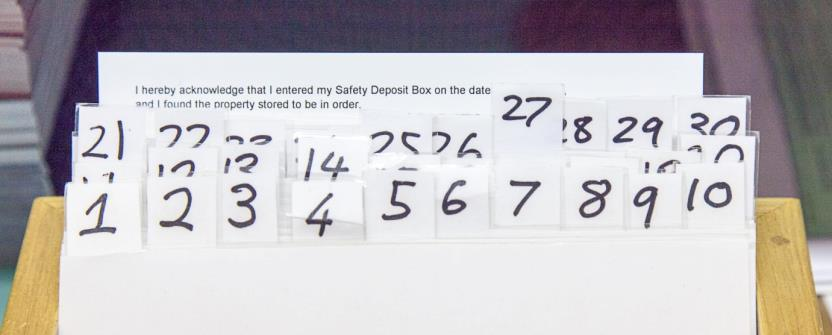 I hereby acknowledge that I entered my Safety Deposit Box on the date
and I found the property stored to be in order.
21 22 23 25 26 27 28 29 30
12 13 14
1 2 3 4 5 6 7 8 9 10